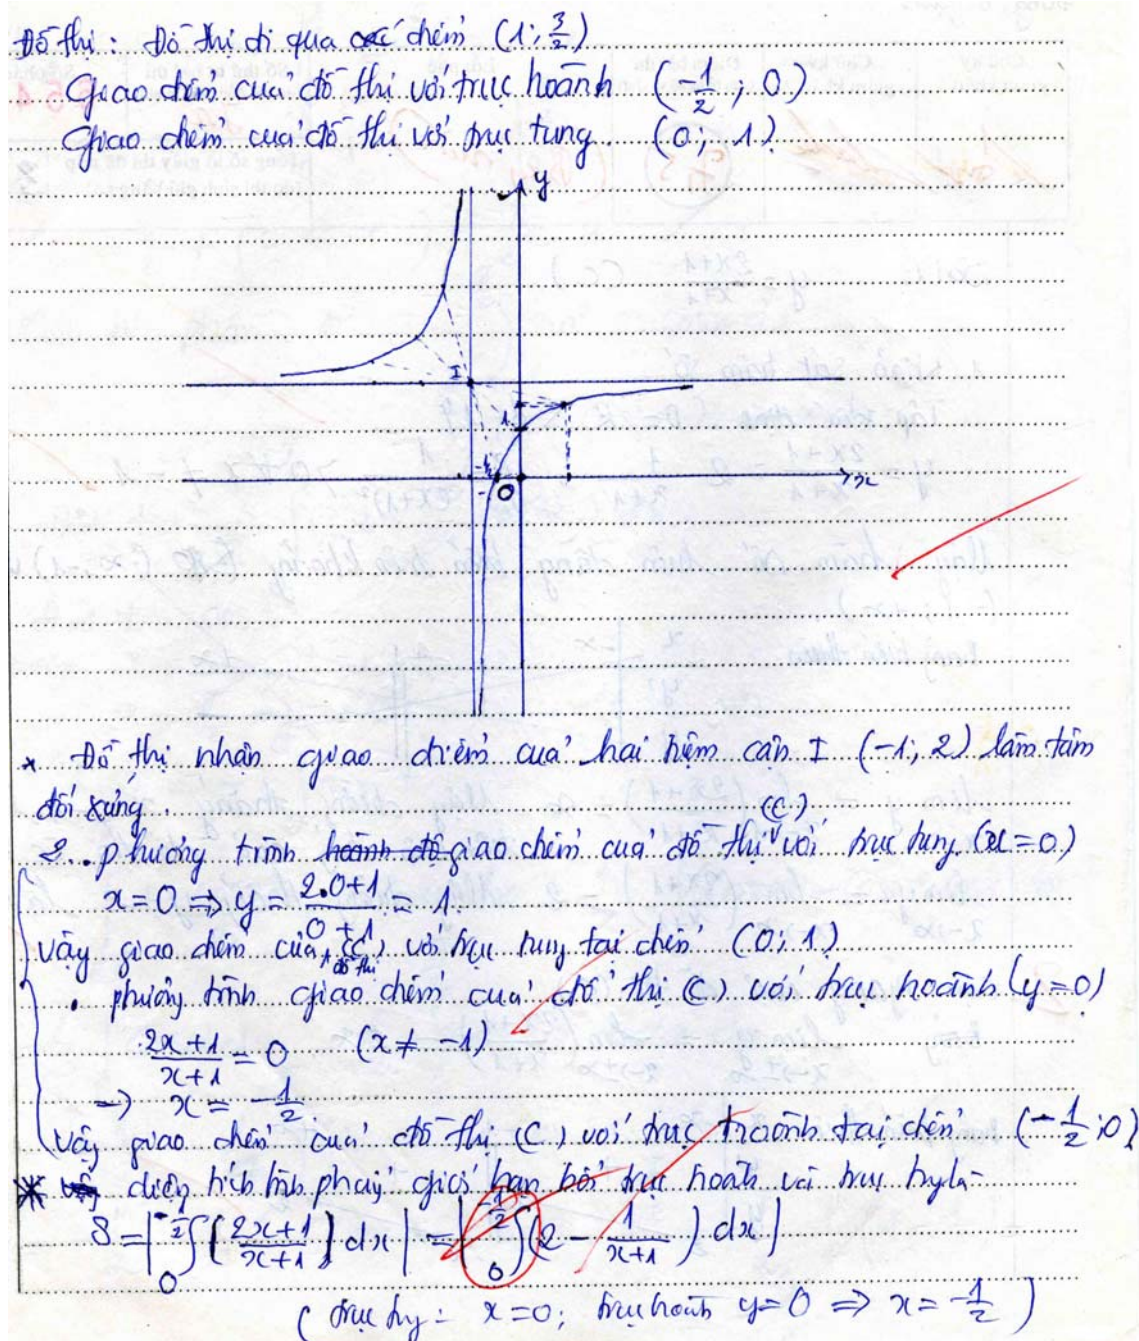 Đồ thị: Đồ thị đi qua điểm (1; 3/2)
Giao điểm của đồ thị với trục hoành (-1/2; 0)
Giao điểm của đồ thị với trục tung (0; 1)
y
I
1
-1/2
O
x
* Đồ thị nhận giao điểm của hai tiệm cận I (-1; 2) làm tâm
đối xứng.
2. phương trình hoành độ giao điểm của đồ thị (C) với trục tung (x=0)
x=0 ⇒ y = (2.0+1)/(0+1) = 1
Vậy giao điểm của đồ thị (C) với trục tung tại điểm (0; 1)
. phương trình giao điểm của đồ thị (C) với trục hoành (y=0)
(2x+1)/(x+1) = 0 (x ≠ -1)
⇒ x = -1/2
Vậy giao điểm của đồ thị (C) với trục hoành tại điểm (-1/2; 0)
* diện tích hình phẳng giới hạn bởi trục hoành và trục tung là
S = |∫₀^(-1/2) ((2x+1)/(x+1)) dx| = |∫₀^(-1/2) (2 - 1/(x+1)) dx|
(trục tung: x=0; trục hoành y=0 ⇒ x = -1/2)